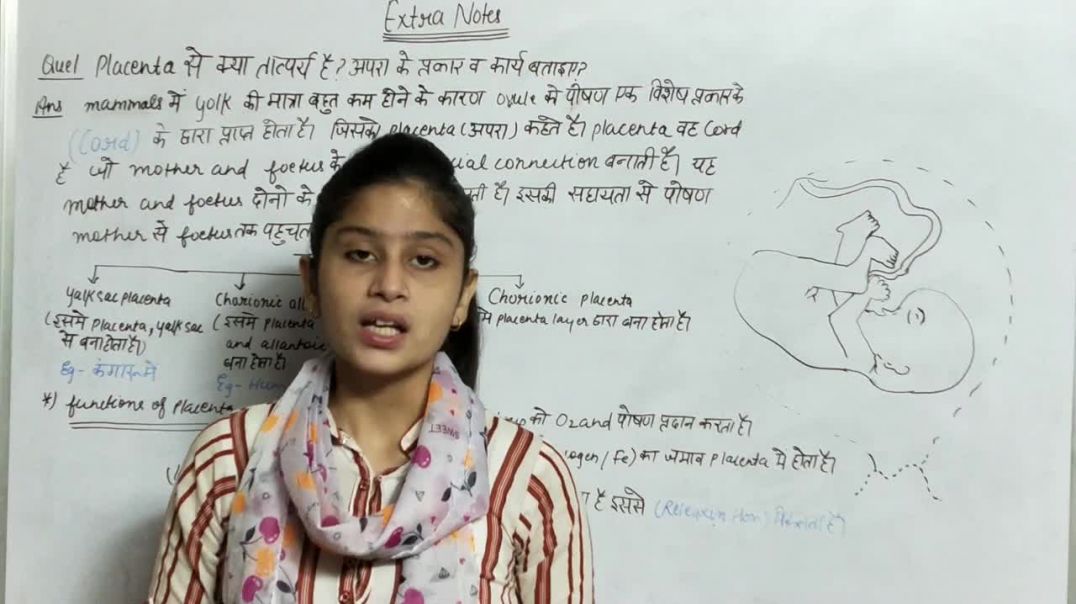 Extra Notes
Que1 Placenta से क्या तात्पर्य है? अपरा के प्रकार व कार्य बताइए?
Ans mammals में yolk की मात्रा बहुत कम होने के कारण ovule को पोषण एक विशेष प्रकार के
(Cord) के द्वारा प्राप्त होता है। जिसको placenta (अपरा) कहते है। placenta वह Cord
है जो mother and foetus के cial connection बनाती है। यह
mother and foetus दोनो के ती है। इसकी सहायता से पोषण
mother से foetus तक पहुचत
Yalk sac placenta
(इसमे placenta, yalk sac
से बना होता है।)
Eg- कंगारू मे
Chorionic all
(इसमे placenta
and allantois
बना होता है।
Eg- Hum
Chorionic placenta
मे placenta layer द्वारा बना होता है।
*) functions of Placenta
को O2 and पोषण प्रदान करता है।
ogen / Fe) का जमाव placenta मे होता है।
है इससे (Relaxin Hon)